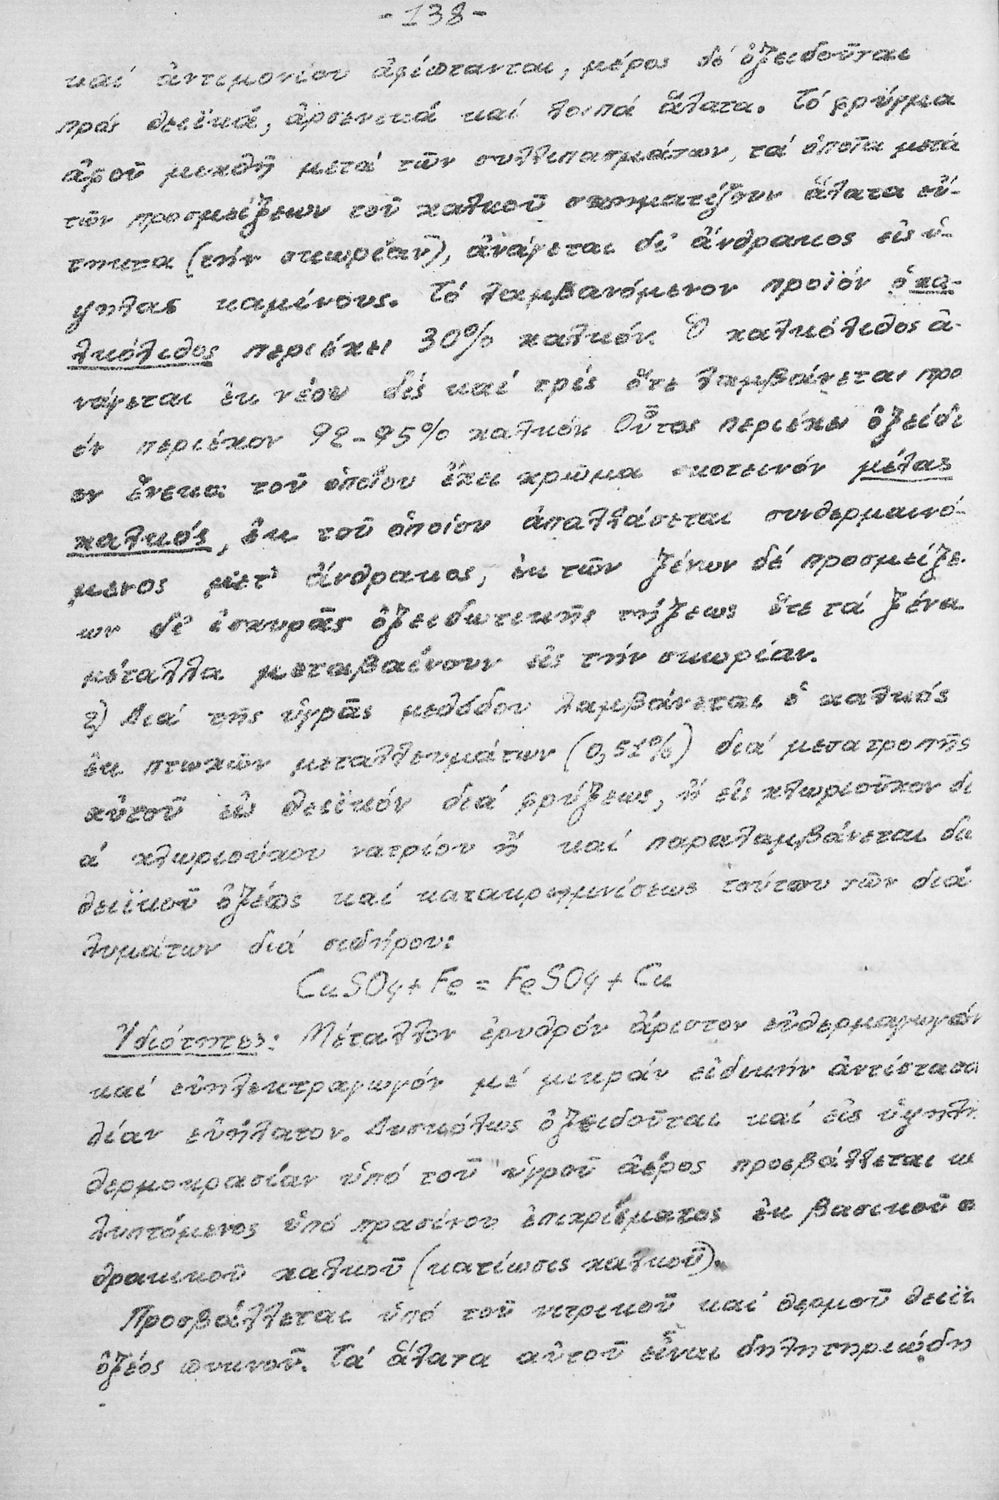 -138-
καί ἀντιμονίου ἀφίστανται, μέρος δέ ὀξειδοῦται
πρός θειϊκά, ἀρσενικά καί λοιπά ἅλατα. Τό φρύγμα
ἀφοῦ μιχθῆ μετά τῶν συλλιπασμάτων, τά ὁποῖα μετά
τῶν προσμείξεων τοῦ χαλκοῦ σχηματίζουν ἅλατα εὔ-
τηκτα (τήν σκωρίαν), ἀνάγεται δι' ἄνθρακος εἰς ὑ-
ψηλάς καμίνους. Τό λαμβανόμενον προϊόν ὁ χα-
λκόλιθος περιέχει 30% χαλκόν. Ὁ χαλκόλιθος ἀ-
νάγεται ἐκ νέου δίς καί τρίς ὅτε λαμβάνεται προ
όν περιέχον 92-95% χαλκόν. Οὗτος περιέχει ὀξείδι
ον ἕνεκα τοῦ ὁποίου ἔχει χρῶμα σκοτεινόν μέλας
χαλκός, ἐκ τοῦ ὁποίου ἀπαλλάσεται συνθερμαινό-
μενος μετ' ἄνθρακος, ἐκ τῶν ξένων δέ προσμείξε-
ων δι' ἰσχυρᾶς ὀξειδωτικῆς τήξεως ὅτε τά ξένα
μέταλλα μεταβαίνουν εἰς τήν σκωρίαν.
2) Διά τῆς ὑγρᾶς μεθόδου λαμβάνεται ὁ χαλκός
ἐκ πτωχῶν μεταλλευμάτων (0,51%) διά μετατροπῆς
αὐτοῦ εἰς θειϊκόν διά φρύξεως, ἤ εἰς χλωριοῦχον δι
ά χλωριούχου νατρίου ἤ καί παραλαμβάνεται διά
θειϊκοῦ ὀξέος καί κατακρημνίσεως τούτου τῶν δια
λυμάτων διά σιδήρου:
CuSO4 + Fe = FeSO4 + Cu
Ἰδιότητες: Μέταλλον ἐρυθρόν ἄριστον εὐθερμαγωγόν
καί εὐηλεκτραγωγόν μέ μικράν εἰδικήν ἀντίστασι
λίαν εὐήλατον. Δυσκόλως ὀξειδοῦται καί εἰς ὑψηλή
θερμοκρασίαν ὑπό τοῦ ὑγροῦ ἀέρος προσβάλλεται κ
λυπτόμενος ὑπό πρασίνου ἐπιχρίσματος ἐκ βασικοῦ α
θρακικοῦ χαλκοῦ (κατίωσις χαλκοῦ).
Προσβάλλεται ὑπό τοῦ νιτρικοῦ καί θερμοῦ θειϊκ
ὀξέος πυκνοῦ. Τά ἅλατα αὐτοῦ εἶναι δηλητηριώδη